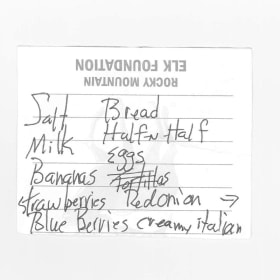 ROCKY MOUNTAIN
ELK FOUNDATION
Salt Bread
Milk Half-n-Half
Eggs
Bananas Tortillas
strawberries Redonion →
Blue Berries creamy italian